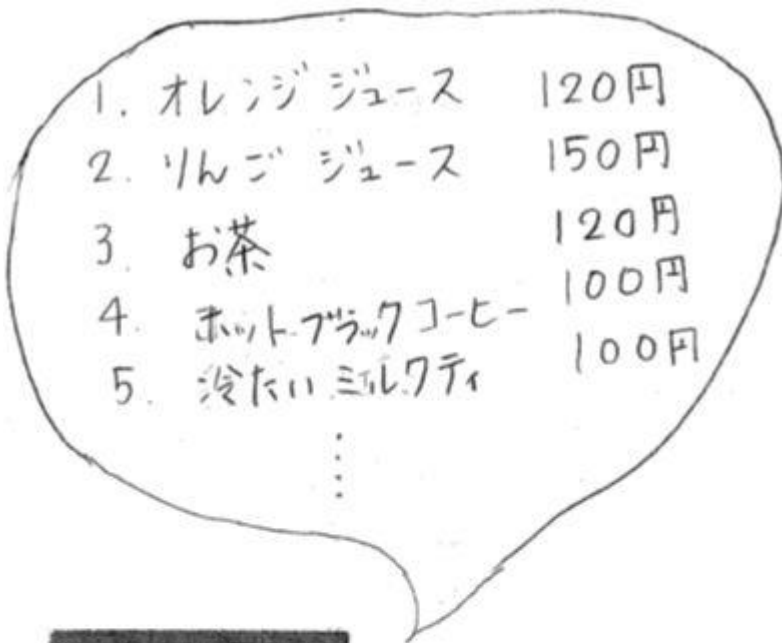 1. オレンジジュース 120円
2. りんごジュース 150円
3. お茶 120円
4. ホットブラックコーヒー 100円
5. 冷たいミルクティ 100円
⋮